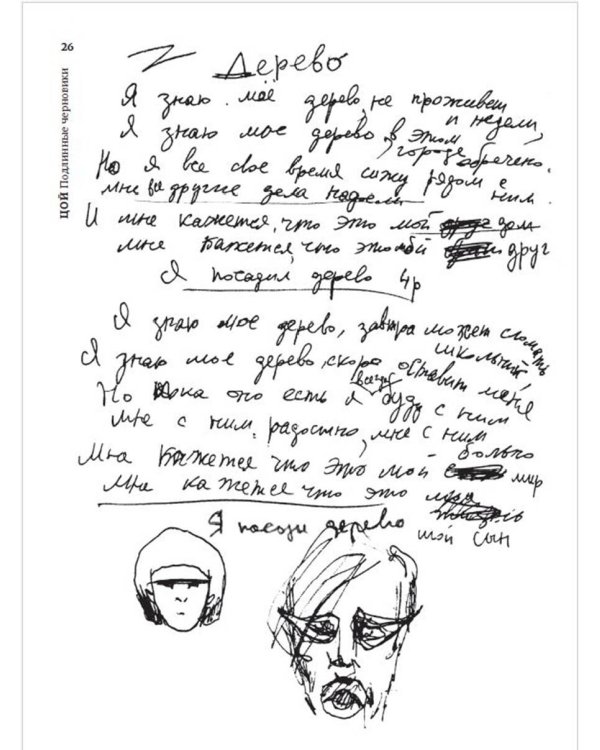 26
ЦОЙ Подлинные черновики
Дерево
Я знаю мое дерево, не проживет и недели,
Я знаю мое дерево в этом городе обречено.
Но я все свое время сижу рядом с ним.
мне все другие дела надоели
И мне кажется, что это мой дом
мне кажется, что это мой друг
Я посадил дерево 4р
Я знаю мое дерево, завтра может сломать школьник,
Я знаю мое дерево, скоро оставит меня
Но пока оно есть я всегда буду с ним
мне с ним радостно, мне с ним больно
Мне кажется что это мой мир
Мне кажется что это мой сын
Я посади дерево